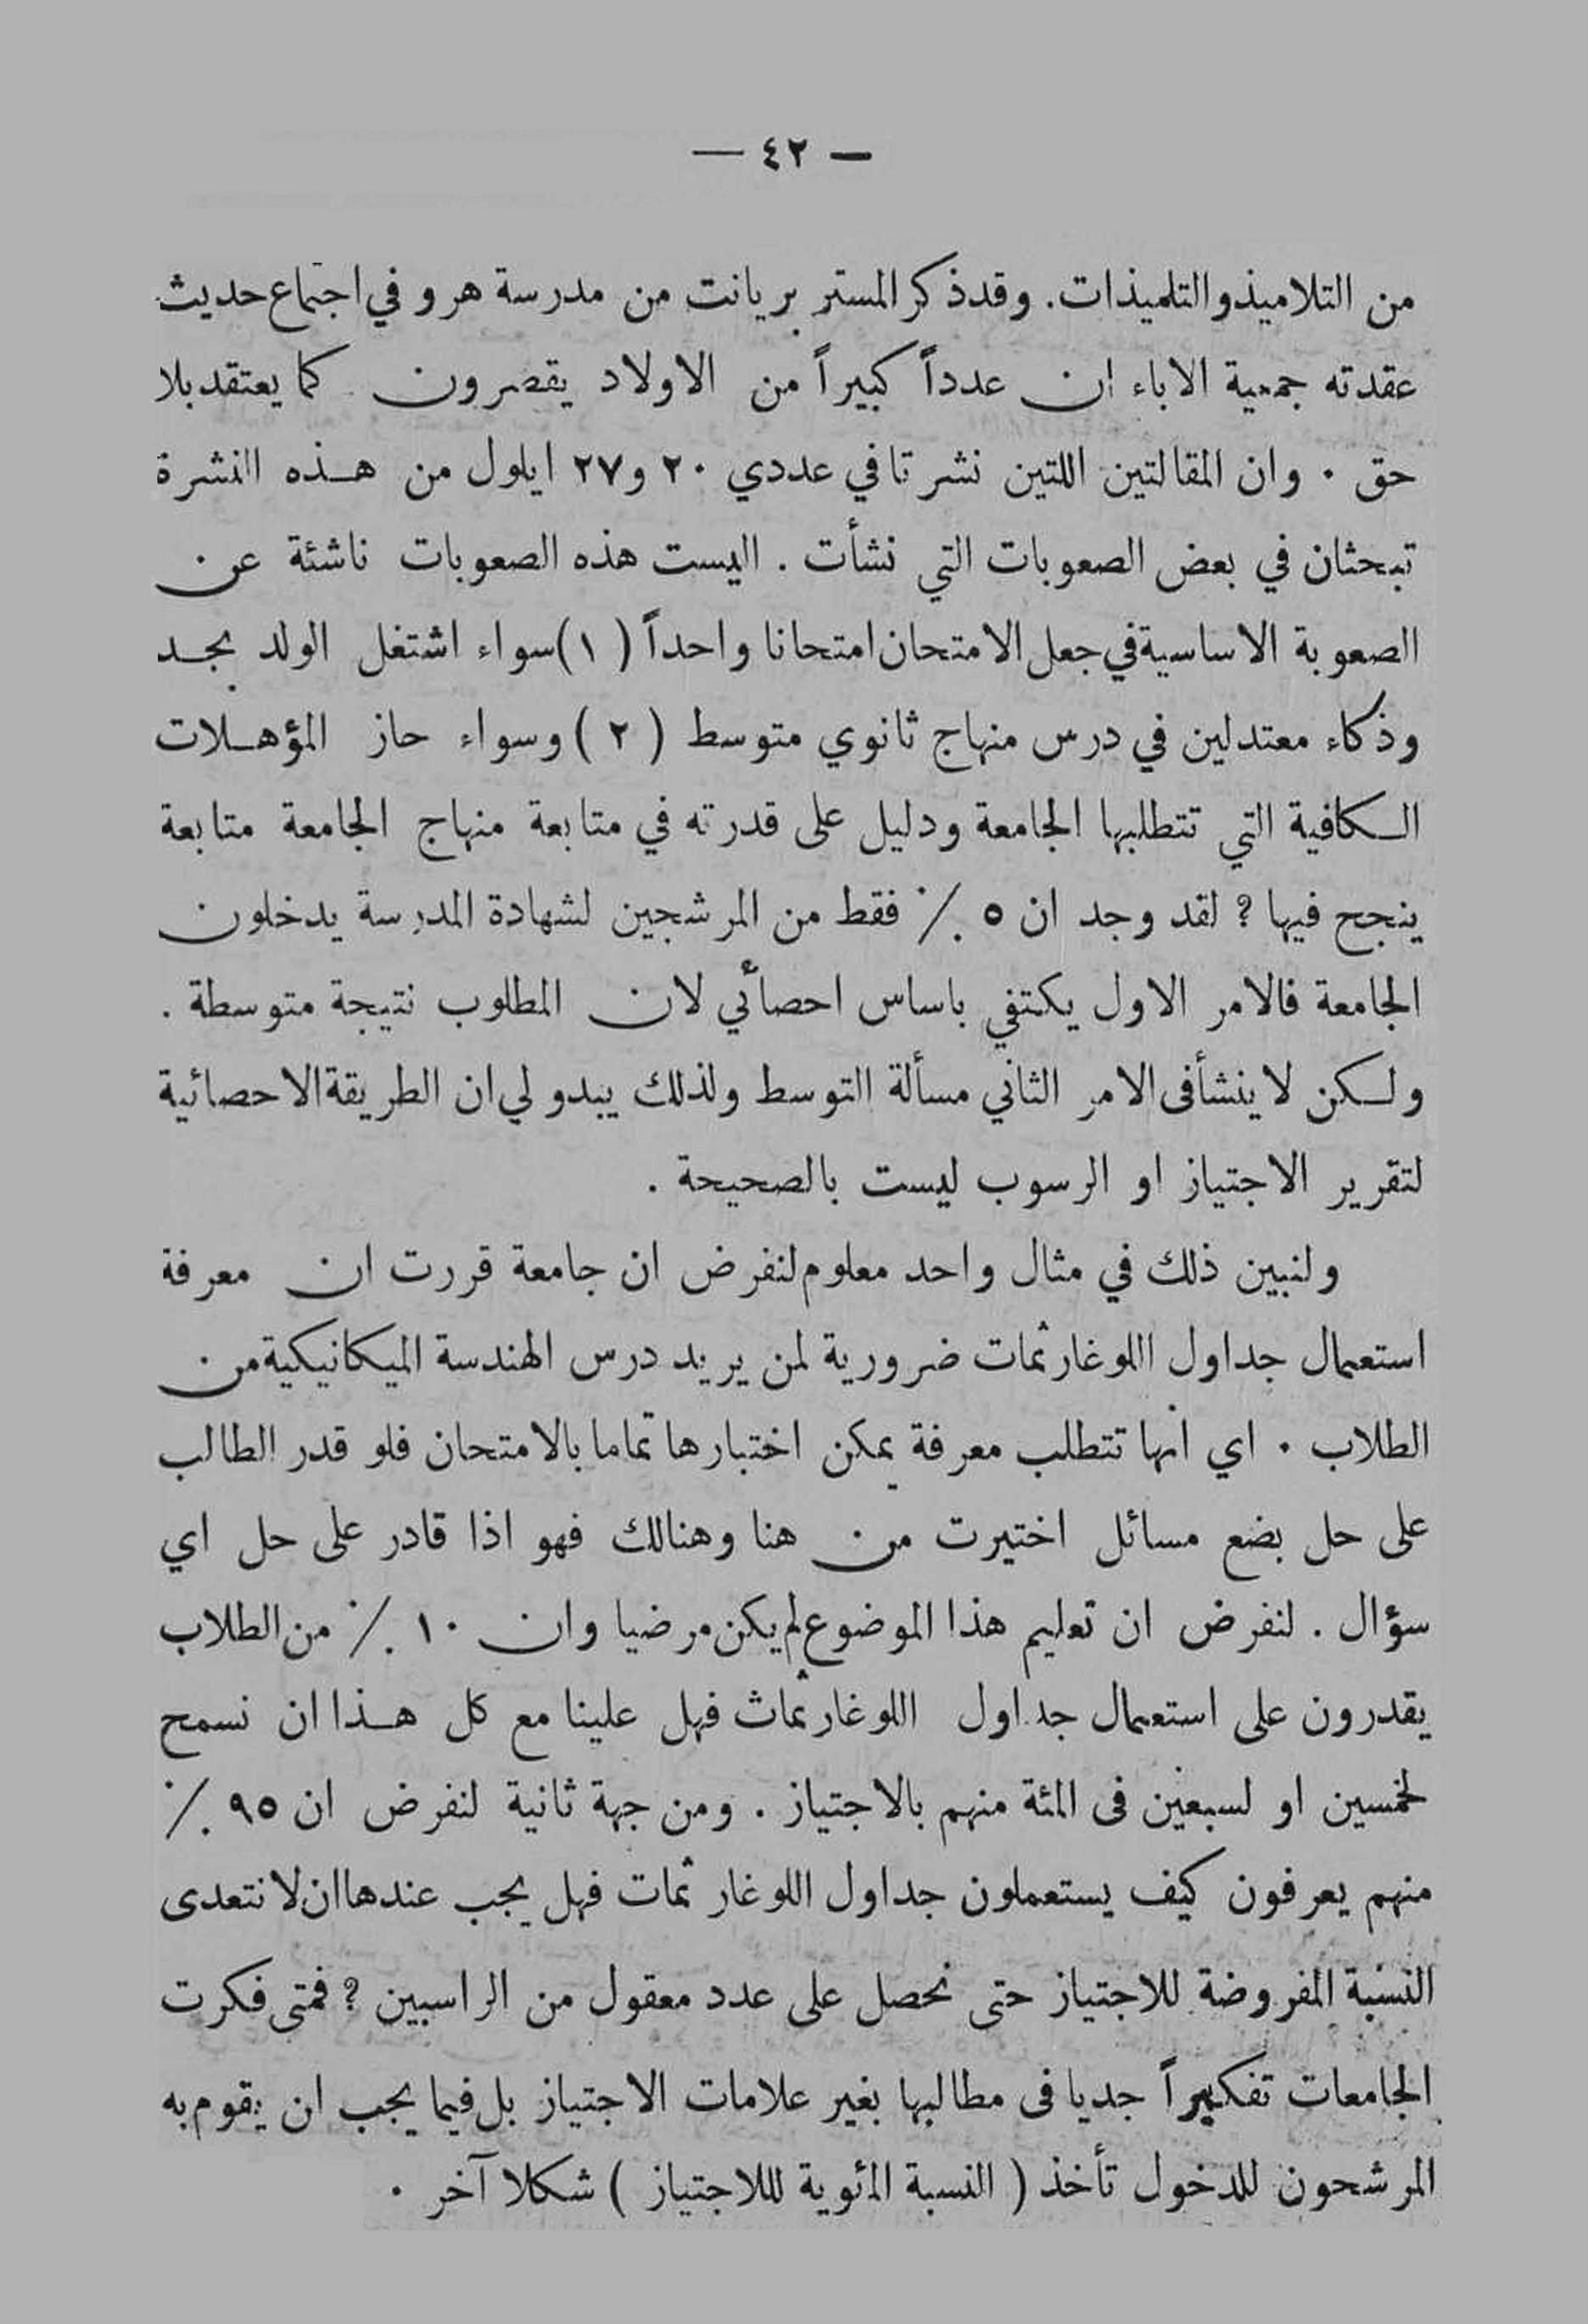 — ٤٢ —
من التلاميذ والتلميذات. وقد ذكر المستر بريانت من مدرسة هرو في اجتماع حديث
عقدته جمعية الاباء ان عدداً كبيراً من الاولاد يقصرون كما يعتقد بلا
حق . وان المقالتين اللتين نشرتا في عددي ٢٠ و٢٧ ايلول من هذه النشرة
تبحثان في بعض الصعوبات التي نشأت . اليست هذه الصعوبات ناشئة عن
الصعوبة الاساسية في جعل الامتحان امتحانا واحداً (١) سواء اشتغل الولد بجد
وذكاء معتدلين في درس منهاج ثانوي متوسط (٢) وسواء حاز المؤهلات
الكافية التي تتطلبها الجامعة ودليل على قدرته في متابعة منهاج الجامعة متابعة
ينجح فيها ؟ لقد وجد ان ٥ ٪ فقط من المرشحين لشهادة المدرسة يدخلون
الجامعة فالامر الاول يكتفي باساس احصائي لان المطلوب نتيجة متوسطة .
ولكن لا ينشأ فى الامر الثاني مسألة التوسط ولذلك يبدو لي ان الطريقة الاحصائية
لتقرير الاجتياز او الرسوب ليست بالصحيحة .
ولنبين ذلك في مثال واحد معلوم لنفرض ان جامعة قررت ان معرفة
استعمال جداول اللوغارثمات ضرورية لمن يريد درس الهندسة الميكانيكية من
الطلاب . اي انها تتطلب معرفة يمكن اختبارها تماما بالامتحان فلو قدر الطالب
على حل بضع مسائل اختيرت من هنا وهنالك فهو اذا قادر على حل اي
سؤال . لنفرض ان تعليم هذا الموضوع لم يكن مرضيا وان ١٠ ٪ من الطلاب
يقدرون على استعمال جداول اللوغارثماث فهل علينا مع كل هذا ان نسمح
لخمسين او لسبعين فى المئة منهم بالاجتياز . ومن جهة ثانية لنفرض ان ٩٥ ٪
منهم يعرفون كيف يستعملون جداول اللوغارثمات فهل يجب عندها ان لا نتعدى
النسبة المفروضة للاجتياز حتى نحصل على عدد معقول من الراسبين ؟ فمتى فكرت
الجامعات تفكيراً جديا فى مطالبها بغير علامات الاجتياز بل فيما يجب ان يقوم به
المرشحون للدخول تأخذ ( النسبة المئوية لللاجتياز ) شكلا آخر .